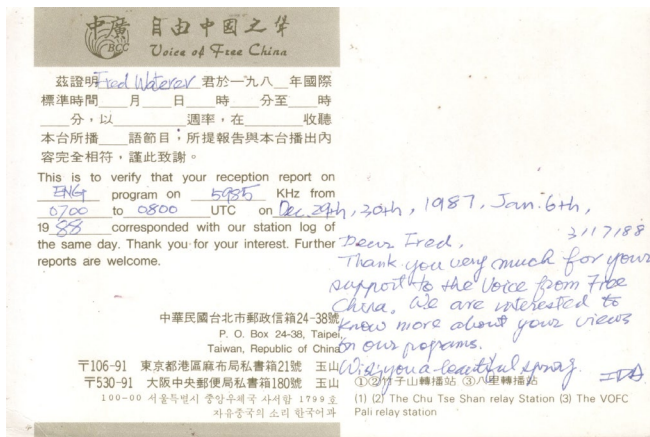 中廣 自由中國之聲
BCC Voice of Free China
茲證明 Fred Waterer 君於一九八__年國際
標準時間____月____日____時____分至____時
____分,以____週率,在____收聽
本台所播____語節目,所提報告與本台播出內
容完全相符,謹此致謝。
This is to verify that your reception report on
ENG program on 5985 KHz from
0700 to 0800 UTC on Dec. 29th, 30th, 1987, Jan. 6th,
19 88 corresponded with our station log of
the same day. Thank you for your interest. Further
reports are welcome.
3/17/88
Dear Fred,
Thank you very much for your
support to the Voice from Free
China. We are interested to
know more about your views
on our programs.
Wish you a beautiful spring.
中華民國台北市郵政信箱24-38號
P. O. Box 24-38, Taipei,
Taiwan, Republic of China
〒106-91 東京都港區麻布局私書箱21號 玉山
〒530-91 大阪中央郵便局私書箱180號 玉山
100-00 서울특별시 중앙우체국 사서함 1799호
자유중국의 소리 한국어과
①②竹子山轉播站 ③八里轉播站
(1) (2) The Chu Tse Shan relay Station (3) The VOFC
Pali relay station